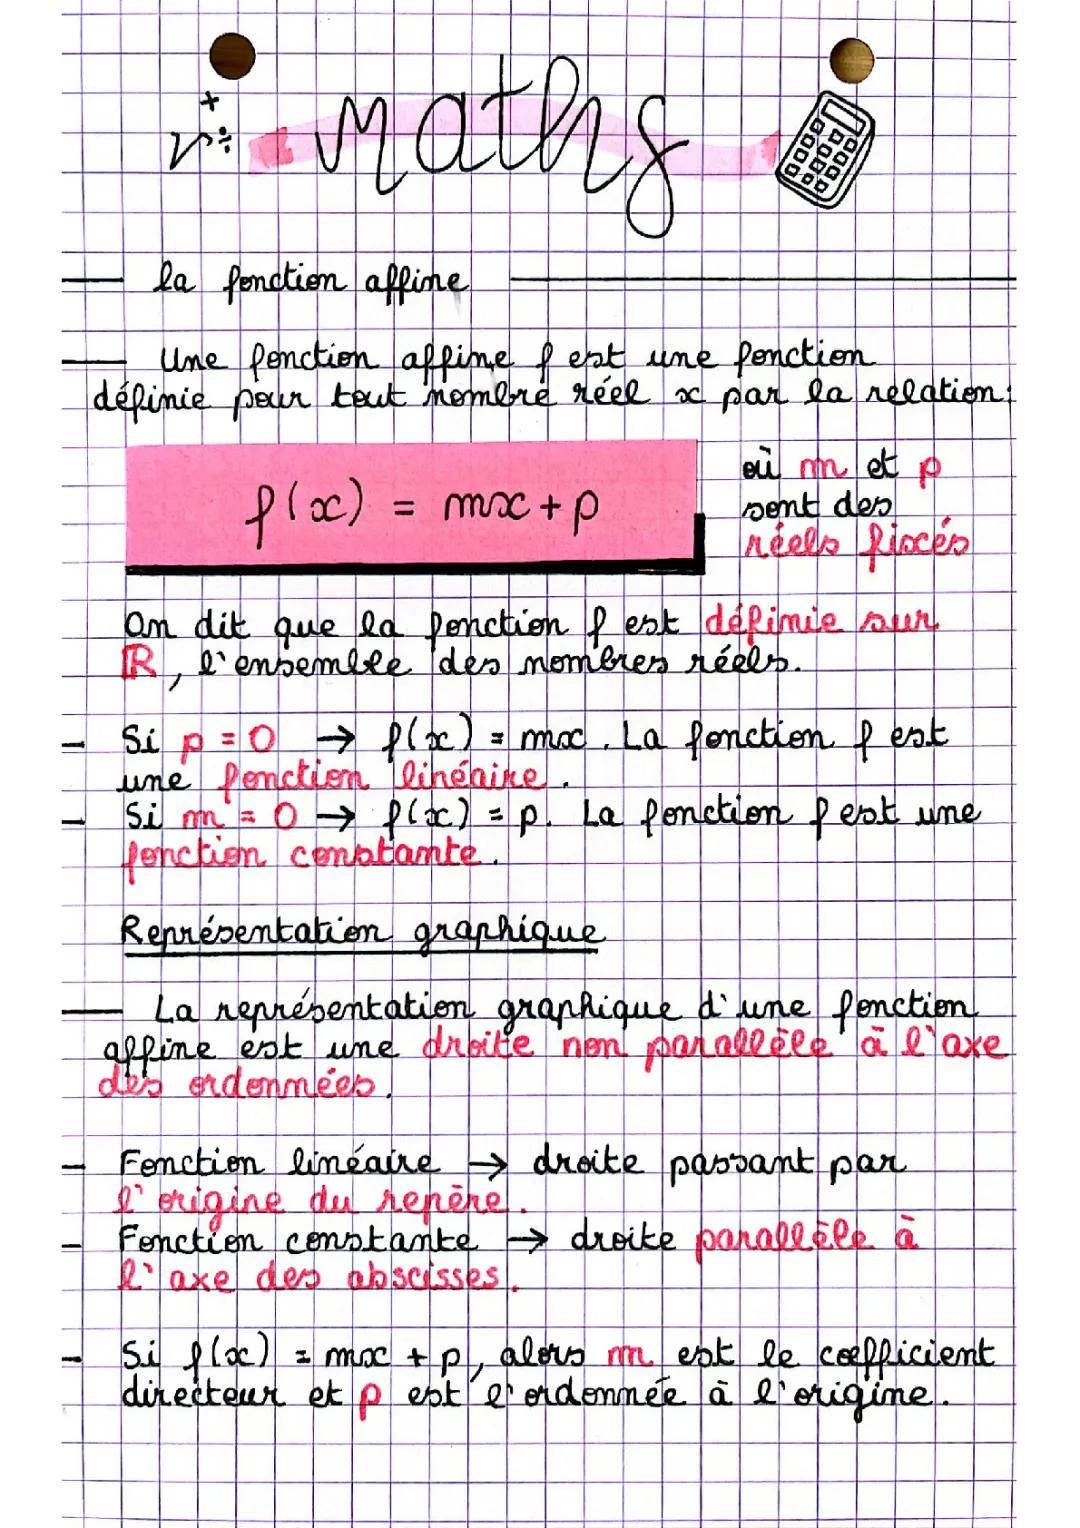 Maths
la fonction affine
Une fonction affine f est une fonction
définie pour tout nombre réel x par la relation :
f(x) = mx + p
où m et p
sont des
réels fixés
On dit que la fonction f est définie sur
ℝ, l'ensemble des nombres réels.
- Si p = 0 → f(x) = mx. La fonction f est
une fonction linéaire.
- Si m = 0 → f(x) = p. La fonction f est une
fonction constante.
Représentation graphique
La représentation graphique d'une fonction
affine est une droite non parallèle à l'axe
des ordonnées.
- Fonction linéaire → droite passant par
l'origine du repère.
- Fonction constante → droite parallèle à
l'axe des abscisses.
- Si f(x) = mx + p, alors m est le coefficient
directeur et p est l'ordonnée à l'origine.